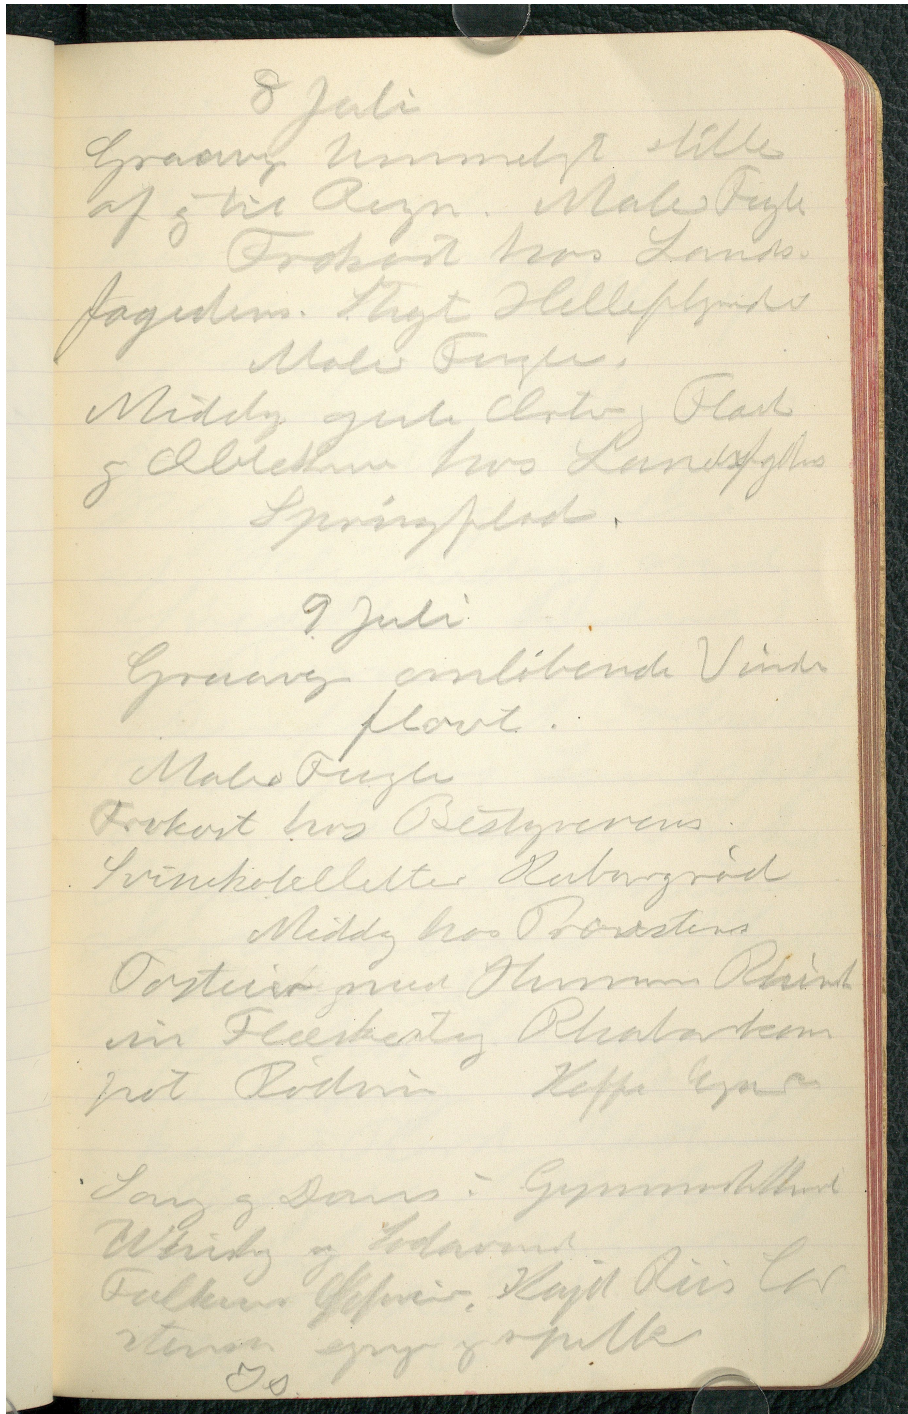 8 Juli
Graavejr hummelgt stille
af og til Regn. Maler Fugle
Frokost hos Lands-
fogedens. Stegt Helleflynder
Maler Fugle.
Middag gule Ærter og Flæsk
og Æblekage hos Landsfogdens
Springflod.
9 Juli
Graavejr omløbende Vinde
flovt.
Maler Fugle
Frokost hos Bestyrerens
Svinekotelletter Rabargrød
Middag hos Provstens
med Hummer Rhinsk
vin Flæskesteg Rhabarkom
pot Rødvin Kaffe
Sang og Dans i
Whisky og Sodavand
Riis Car
stensen og spille
Is.